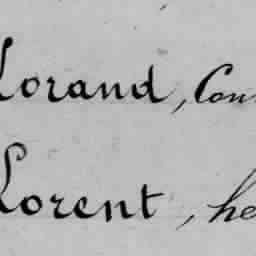 Lorand, Con
Lorent, he